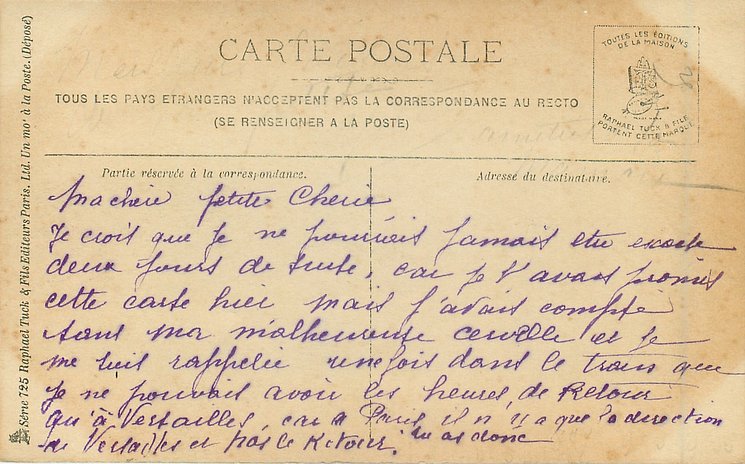 CARTE POSTALE
TOUTES LES ÉDITIONS
DE LA MAISON
RAPHAEL TUCK & FILS
PORTENT CETTE MARQUE
TOUS LES PAYS ETRANGERS N'ACCEPTENT PAS LA CORRESPONDANCE AU RECTO
(SE RENSEIGNER A LA POSTE)
Partie réservée à la correspondance.
Adressé du destinataire.
Ma chère petite Cherie
Je croit que je ne pourrais jamais etre exacte
deux jours de suite, car je t'avais promis
cette carte hier mais j'avais compte
sans ma malheureuse cervelle et je
me suis rappelée une fois dans le train que
je ne pouvait avoir les heures de Retour
qu'à Versailles, car a Paris il n'y a que la direction
de Versailles et pas le Retour. tu as donc
Série 725 Raphael Tuck & Fils Editeurs Paris, Ltd. Un mot à la Poste. (Déposé)